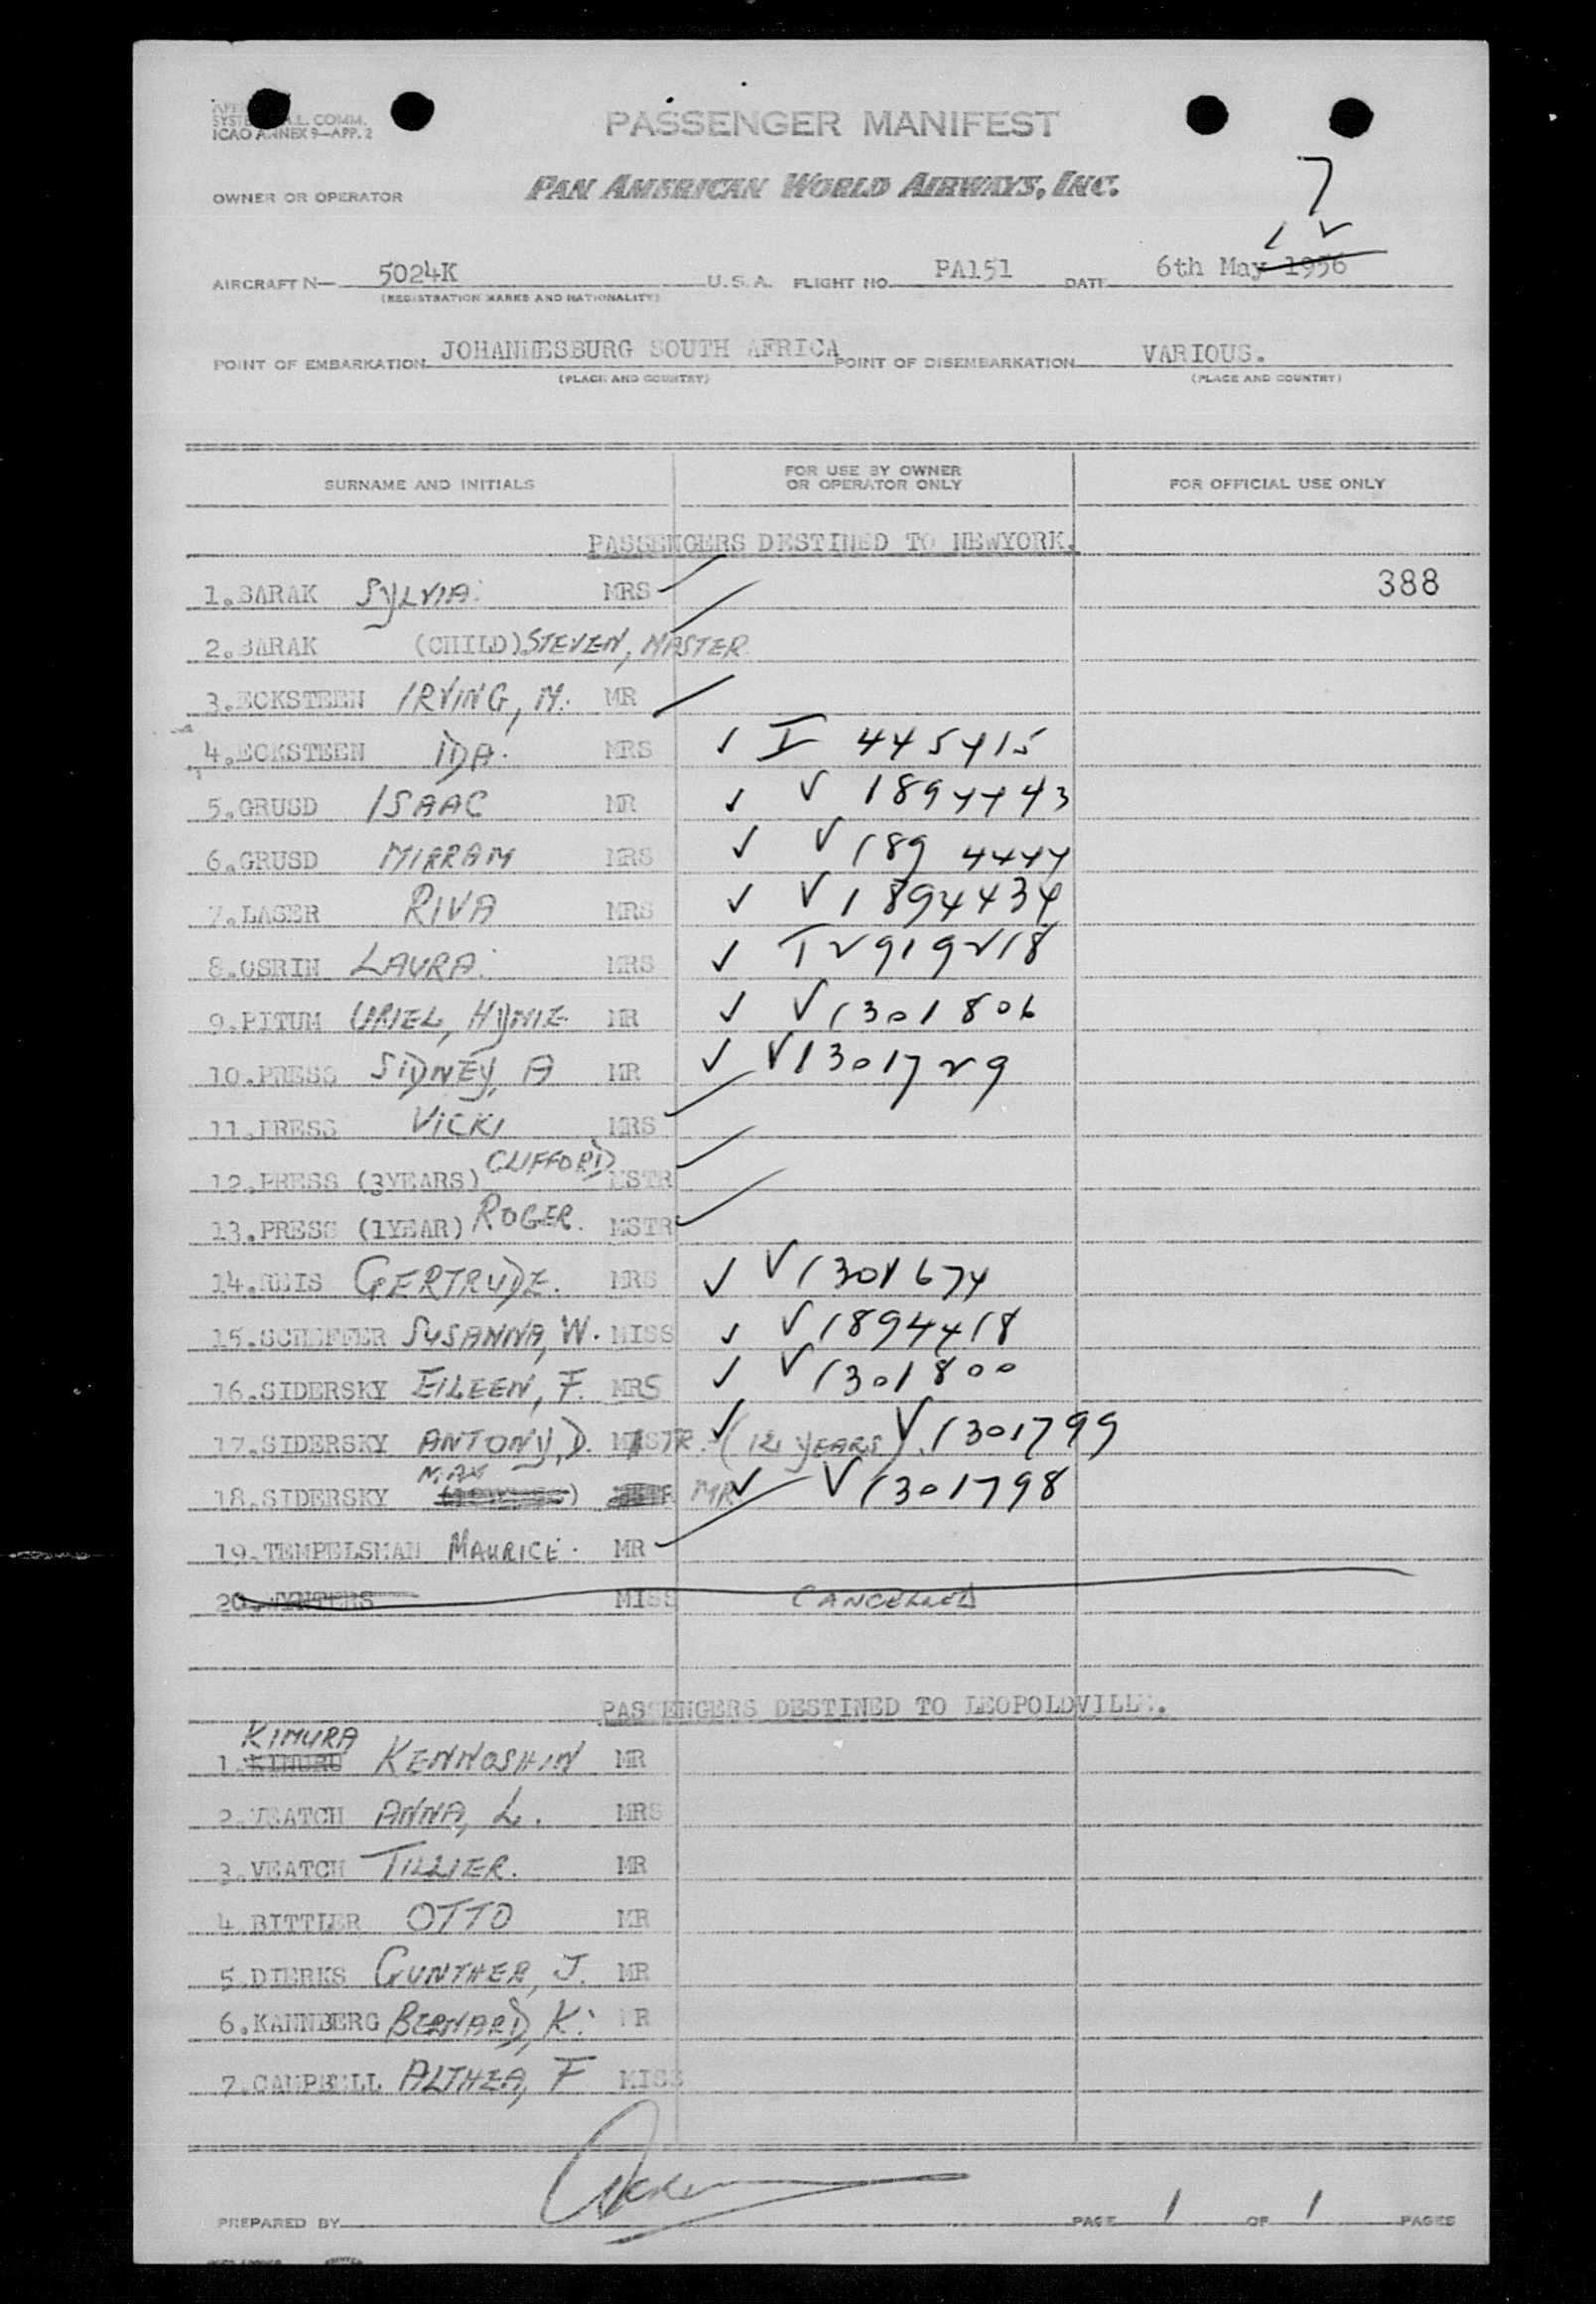 SYST
A.L. COMM.
ICAO ANNEX 9—APP. 2
PASSENGER MANIFEST
OWNER OR OPERATOR PAN AMERICAN WORLD AIRWAYS, INC.
7
AIRCRAFT N— 5024K U.S.A. FLIGHT NO. PA151 DATE 6th May 1956
(REGISTRATION MARKS AND NATIONALITY)
POINT OF EMBARKATION JOHANNESBURG SOUTH AFRICA POINT OF DISEMBARKATION VARIOUS.
(PLACE AND COUNTRY) (PLACE AND COUNTRY)
SURNAME AND INITIALS FOR USE BY OWNER OR OPERATOR ONLY FOR OFFICIAL USE ONLY
PASSENGERS DESTINED TO NEWYORK.
1.BARAK SYLVIA. MRS 388
2.BARAK (CHILD) STEVEN, MASTER
3.ECKSTEEN IRVING, M. MR
4.ECKSTEEN IDA. MRS ✓ I 445415
5.GRUSD ISAAC MR ✓ V 1894443
6.GRUSD MIRRAM MRS ✓ V 189 4444
7.LASER RIVA MRS ✓ V 1894434
8.OSRIN LAURA. MRS ✓ I 2919218
9.PITUM URIEL, HYMIE MR ✓ V 1301806
10.PRESS SIDNEY, A MR ✓ V 1301729
11.PRESS VICKI MRS
12.PRESS (3YEARS) CLIFFORD MSTR
13.PRESS (1YEAR) ROGER. MSTR
14.REIS GERTRUDE. MRS ✓ V 1301674
15.SCHEFFER SUSANNA, W. MISS ✓ V 1894418
16.SIDERSKY EILEEN, F. MRS ✓ V 1301800
17.SIDERSKY ANTONY, D. MSTR. (12 YEARS) ✓ V 1301799
18.SIDERSKY MAX MR ✓ V 1301798
19.TEMPELSMAN MAURICE. MR
20.WYNTERS MISS CANCELLED
PASSENGERS DESTINED TO LEOPOLDVILLE.
KIMURA
1.KIMURU KENNOSHIN MR
2.VEATCH ANNA, L. MRS
3.VEATCH TILLIER. MR
4.BITTLER OTTO MR
5.DIERKS GUNTHER, J. MR
6.KANNBERG BERNARD, K. MR
7.CAMPBELL ALTHEA, F MISS
PREPARED BY PAGE 1 OF 1 PAGES